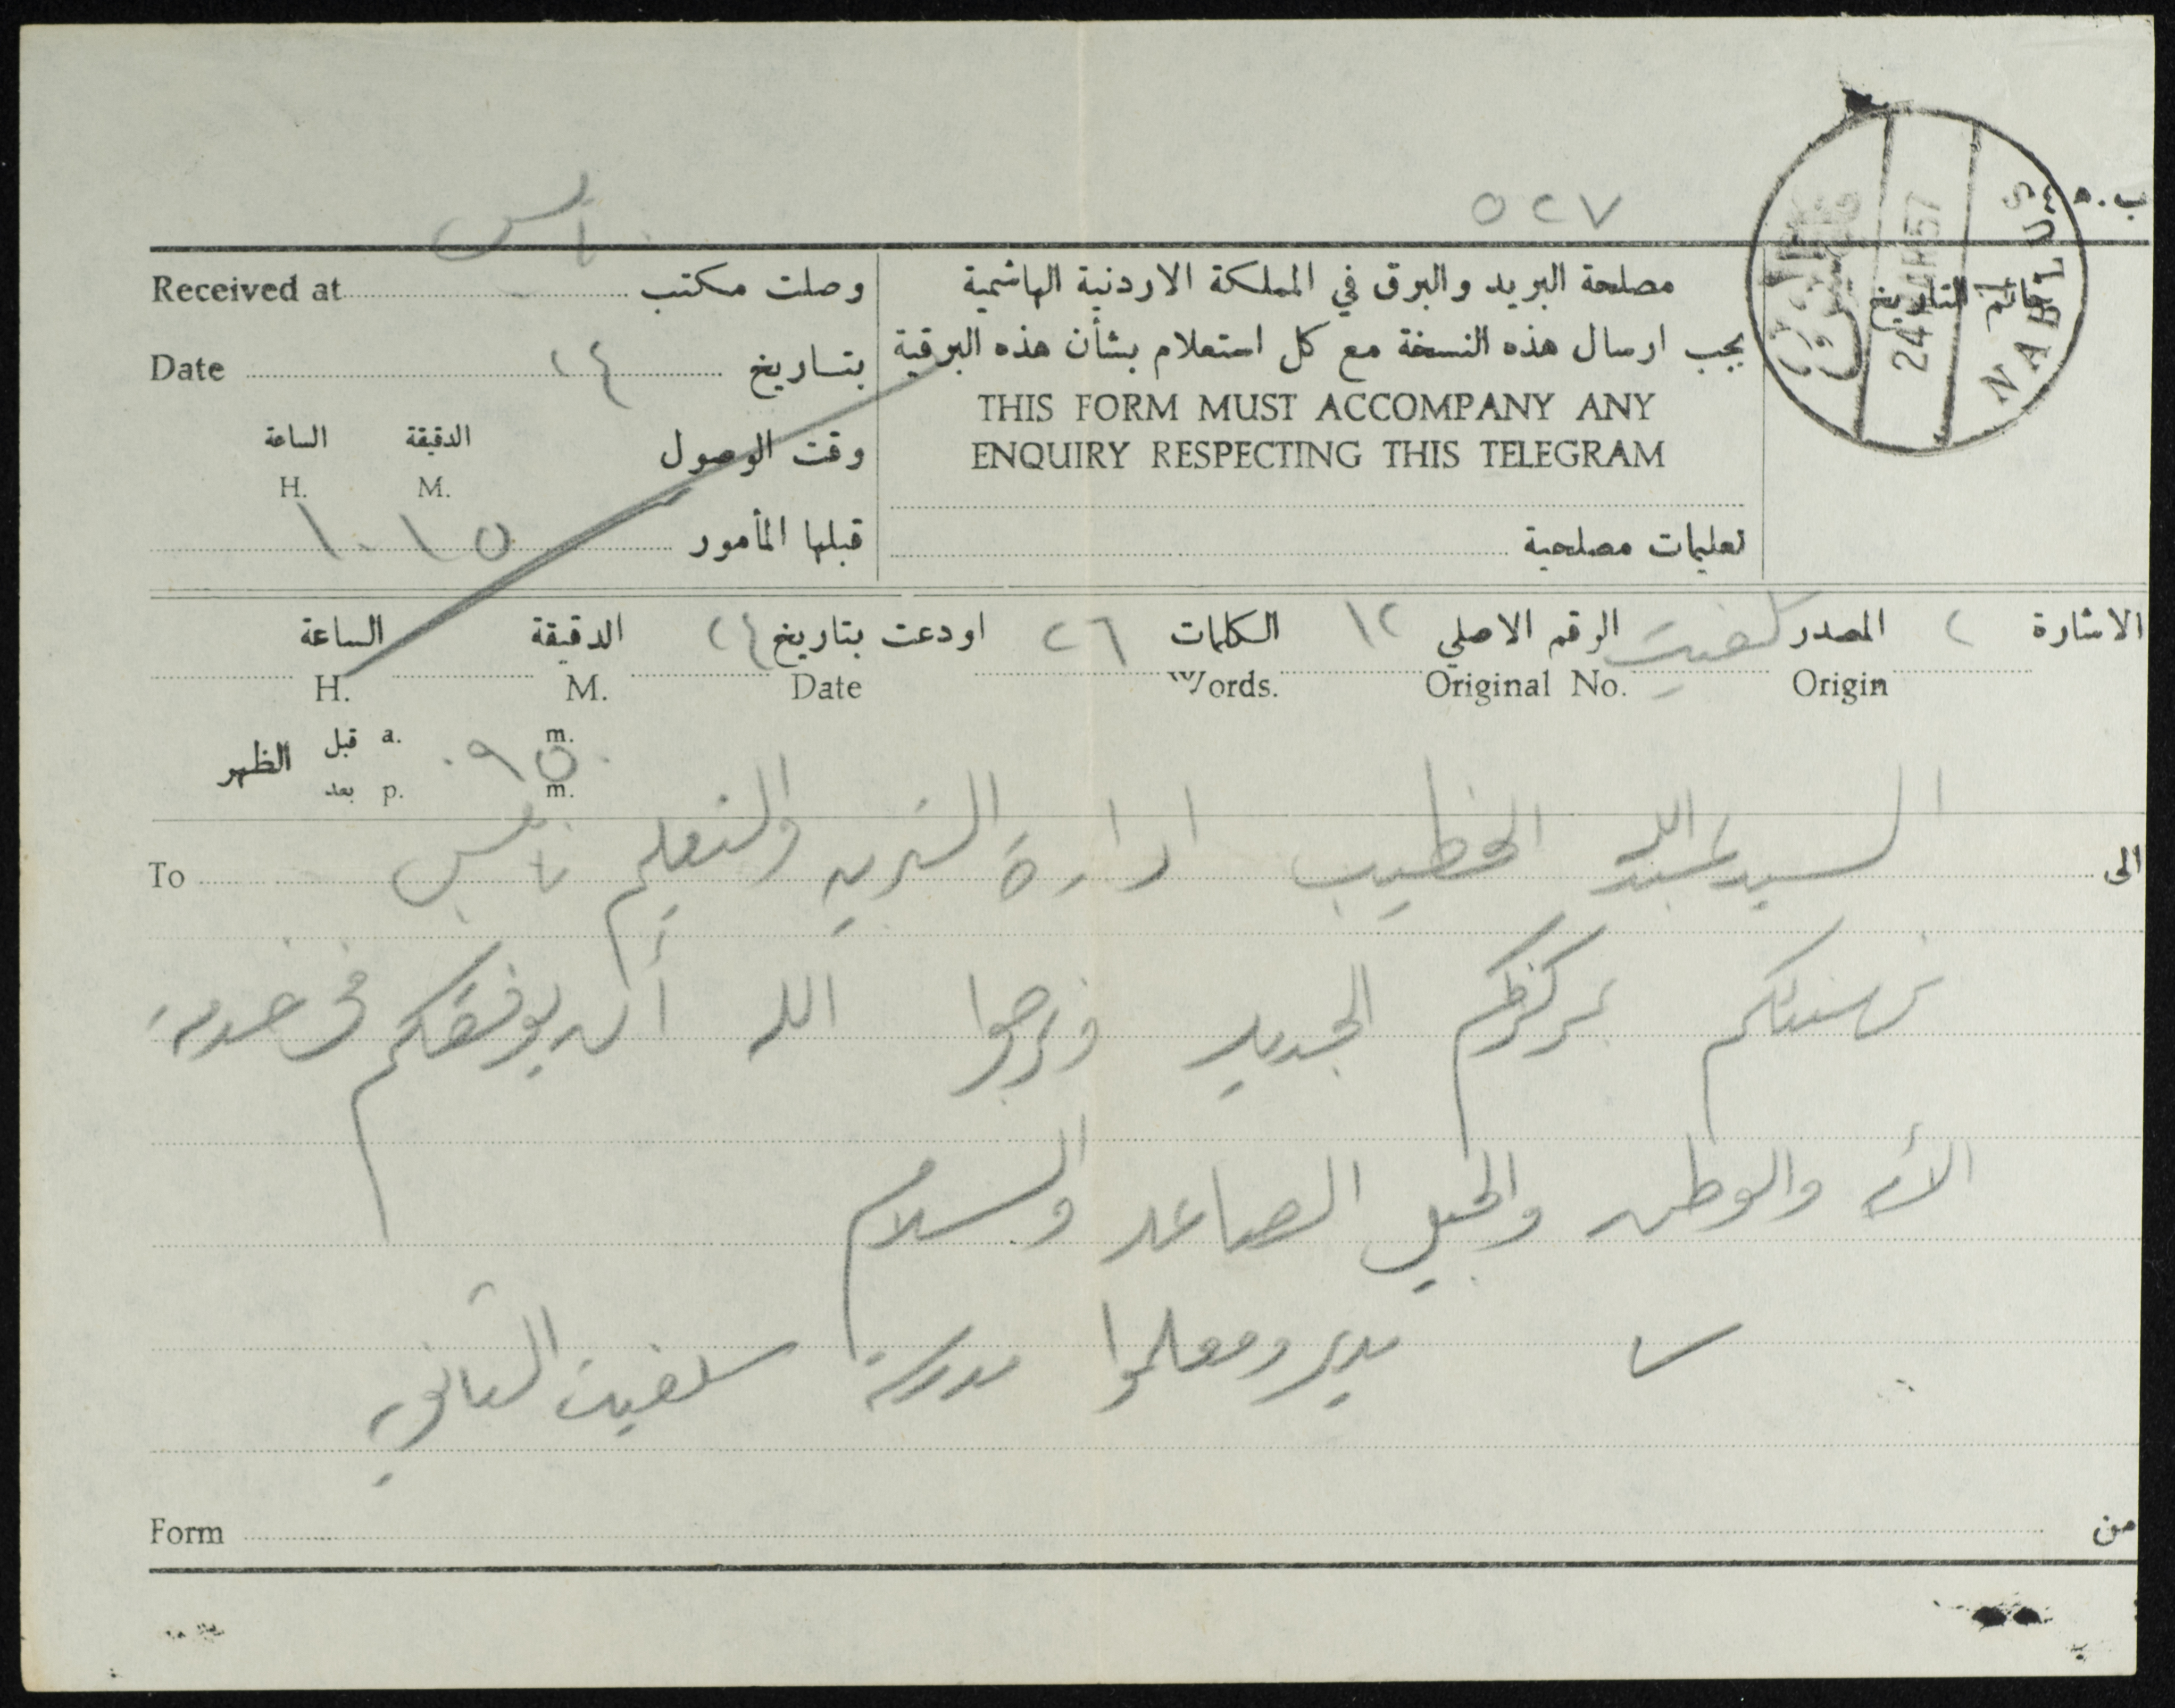 نابلس
٥٢٧
ب. ه
NABLUS
نابلس
Received at وصلت مكتب
مصلحة البريد والبرق في المملكة الاردنية الهاشمية
خاتم التاريخ
Date ٢٤ بتاريخ
يجب ارسال هذه النسخة مع كل استعلام بشأن هذه البرقية
THIS FORM MUST ACCOMPANY ANY
ENQUIRY RESPECTING THIS TELEGRAM
وقت الوصول الدقيقة الساعة
H. M.
قبلها المأمور ١٠١٥
تعليمات مصلحية
الاشارة ٢ المصدر سلفيت الرقم الاصلي ١٢ الكلمات ٢٦ اودعت بتاريخ ٢٤ الدقيقة الساعة
H. M. Date Words. Original No. Origin
الظهر قبل a. m.
بعد p. m.
٠٩٥٠
الى السيد عبدالله الخطيب ادارة التربيه والتعليم نابلس To
نهنئكم بمركزكم الجديد ونرجوا الله أن يوفقكم في خدمة
الأمة والوطن والجيل الصاعد والسلام
مدير ومعلموا مدرسة سلفيت الثانوية
Form من